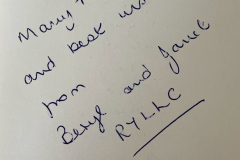 Many
and best
from
Beryl and Janet
RYLLC